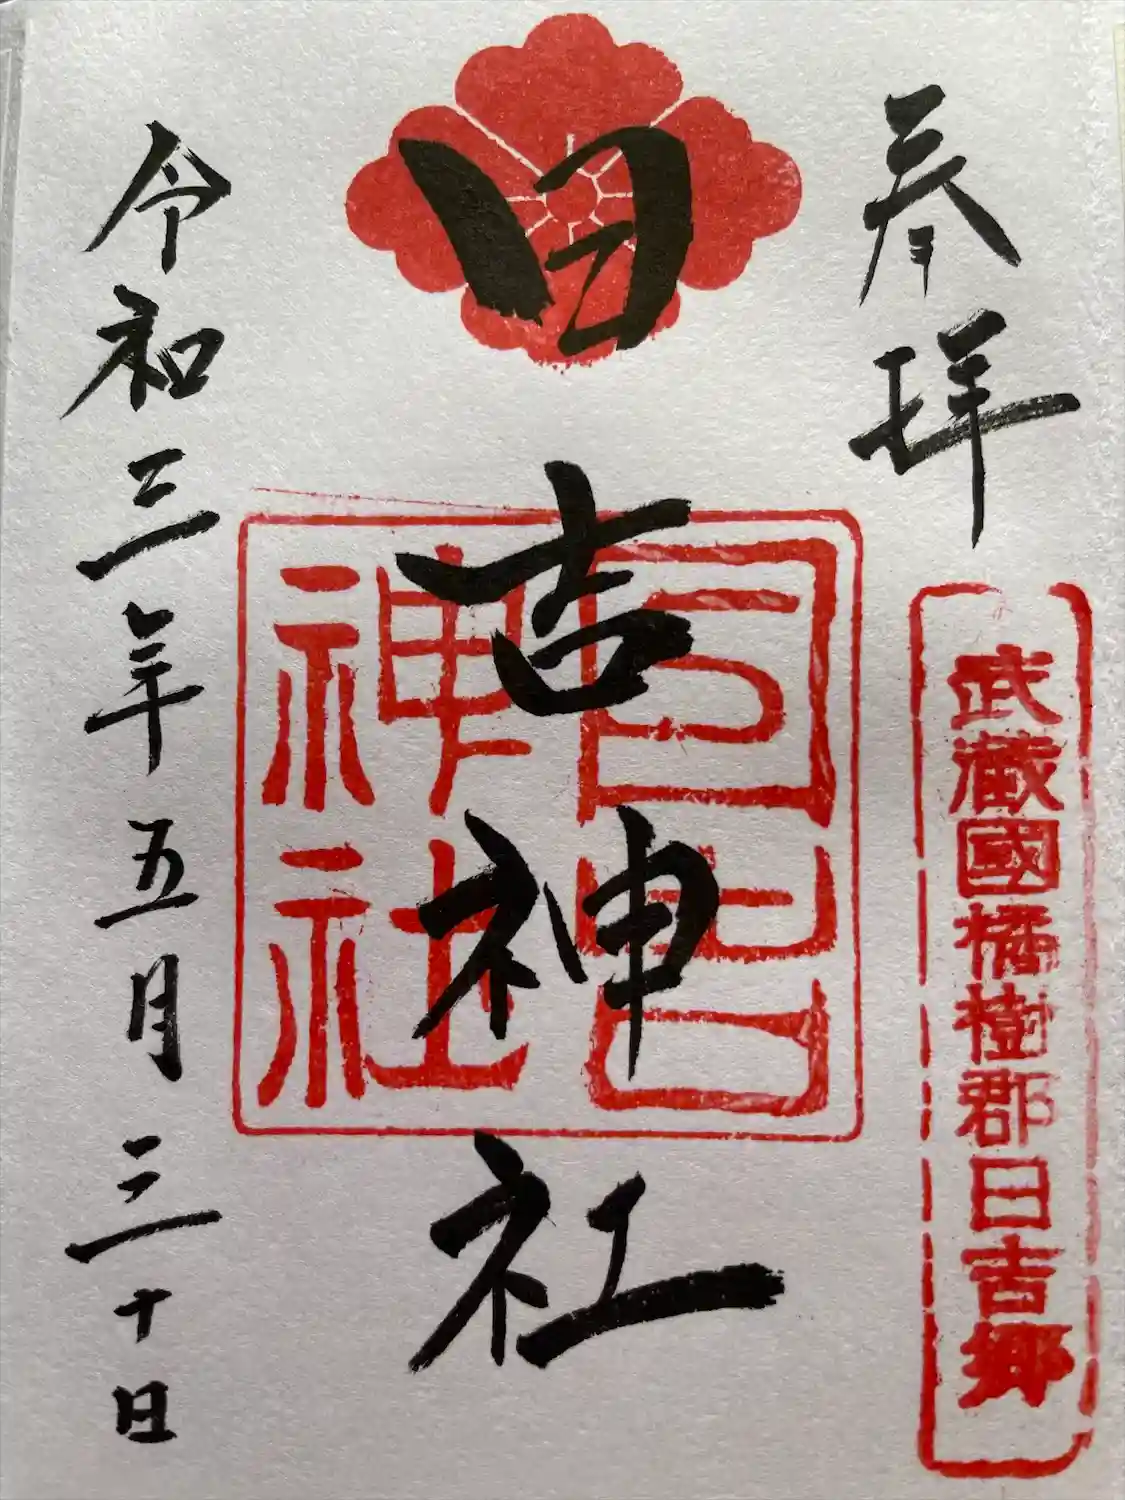 奉拝
武蔵國橘樹郡日吉郷
日吉神社
日吉
神社
令和三年五月三十日